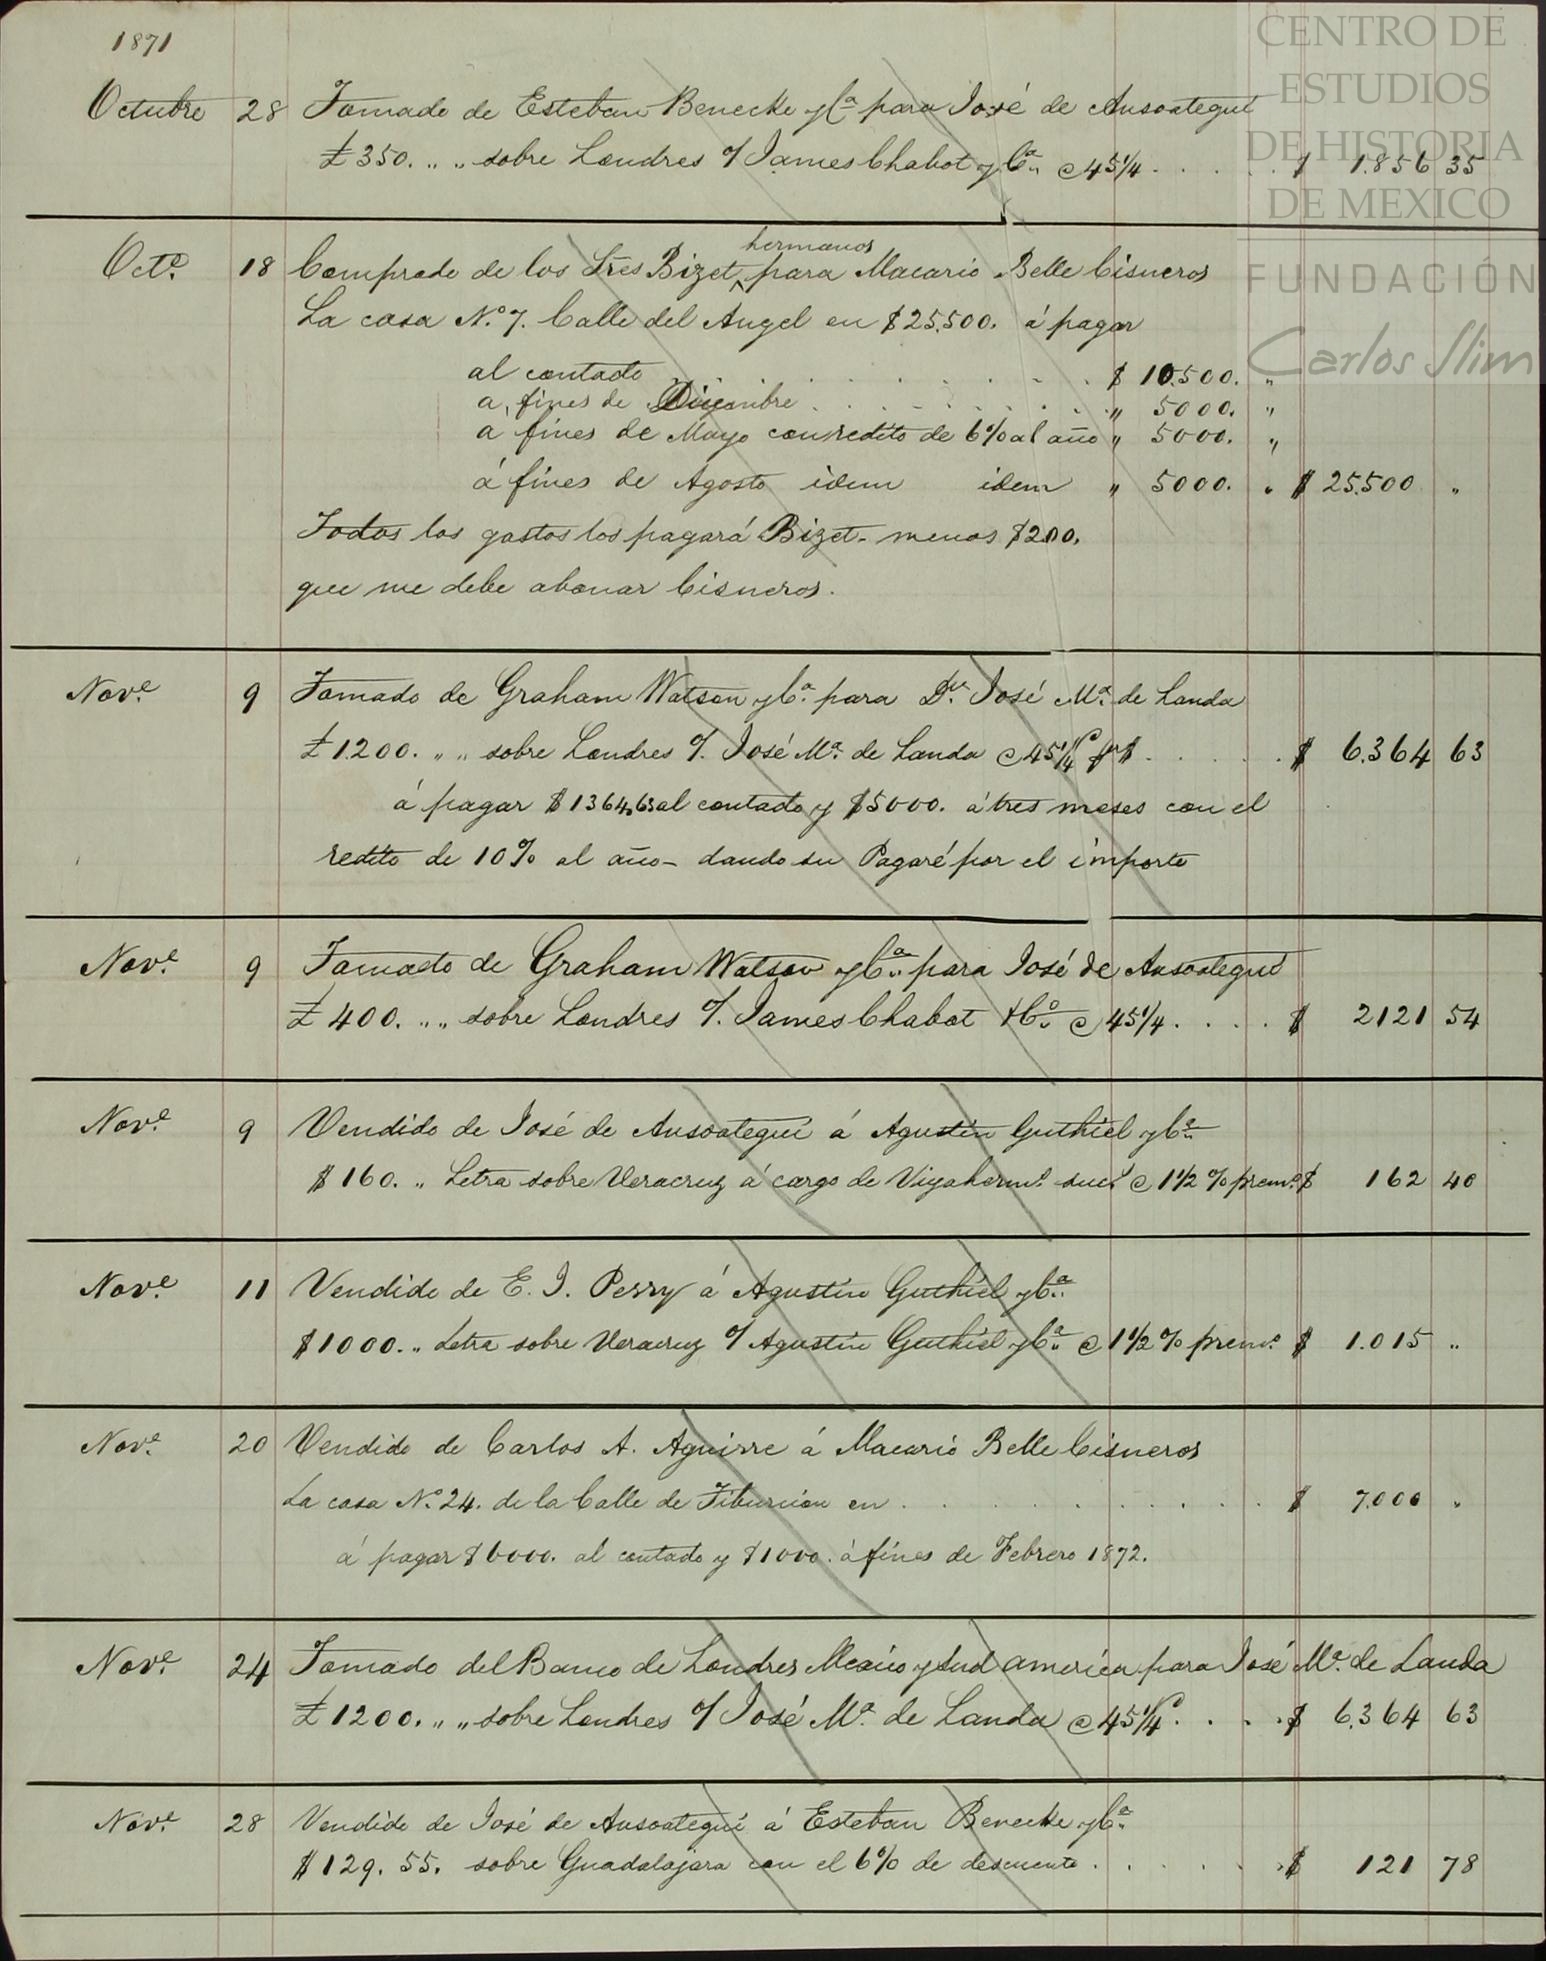 1871
Octubre 28 Tomado de Esteban Benecke y Cª para José de Ansoategui
£ 350. „ „ sobre Londres % James Chabot y Cª @ 45 1/4 . . . . . $ 1.856 35
Octe. 18 Comprado de los Sres Bizet hermanos para Macario Belle Cisneros
La casa N.º 7. Calle del Angel en $ 25.500. á pagar
al contado . . . . . . . . . $ 10.500. „
a fines de Diciembre . . . . . . . . „ 5000. „
a fines de Mayo con redito de 6% al año „ 5000. „
á fines de Agosto idem idem „ 5000. „ $ 25.500 „
Todos los gastos los pagará Bizet - menos $ 200.
que me debe abonar Cisneros.
Nove. 9 Tomado de Graham Watson y Cª para Dn. José Mª de Landa
£ 1.200. „ „ sobre Londres %. José Mª de Landa @ 45 1/4 . . . . . $ 6.364 63
á pagar $ 1364,63 al contado y $ 5000. á tres meses con el
redito de 10% al año - dando su Pagaré por el importe
Nove. 9 Tomado de Graham Watson y Cª para José de Ansoategui
£ 400. „ „ sobre Londres %. James Chabot & Cº @ 45 1/4 . . . . $ 2121 54
Nove. 9 Vendido de José de Ansoategui á Agustin Guthiel y Cª
$ 160. „ Letra sobre Veracruz á cargo de Viya hermº suc. @ 1 1/2 % premº $ 162 40
Nove. 11 Vendido de E. J. Perry á Agustin Guthiel y Cª
$ 1000. „ Letra sobre Veracruz % Agustin Guthiel y Cª @ 1 1/2 % premº $ 1.015 „
Nove. 20 Vendido de Carlos A. Aguirre á Macario Belle Cisneros
La casa Nº 24. de la Calle de Tiburcio en . . . . . . . . . $ 7.000 „
á pagar $ 6000. al contado y $ 1000. á fines de Febrero 1872.
Nove. 24 Tomado del Banco de Londres Mexico y Sud america para José Mª de Landa
£ 1200. „ „ sobre Londres % José Mª de Landa @ 45 1/4 . . . . $ 6.364 63
Nove. 28 Vendido de José de Ansoategui á Esteban Benecke y Cª
$ 129. 55. sobre Guadalajara con el 6% de descuento . . . . . $ 121 78
CENTRO DE
ESTUDIOS
DE HISTORIA
DE MEXICO
FUNDACIÓN
Carlos Slim